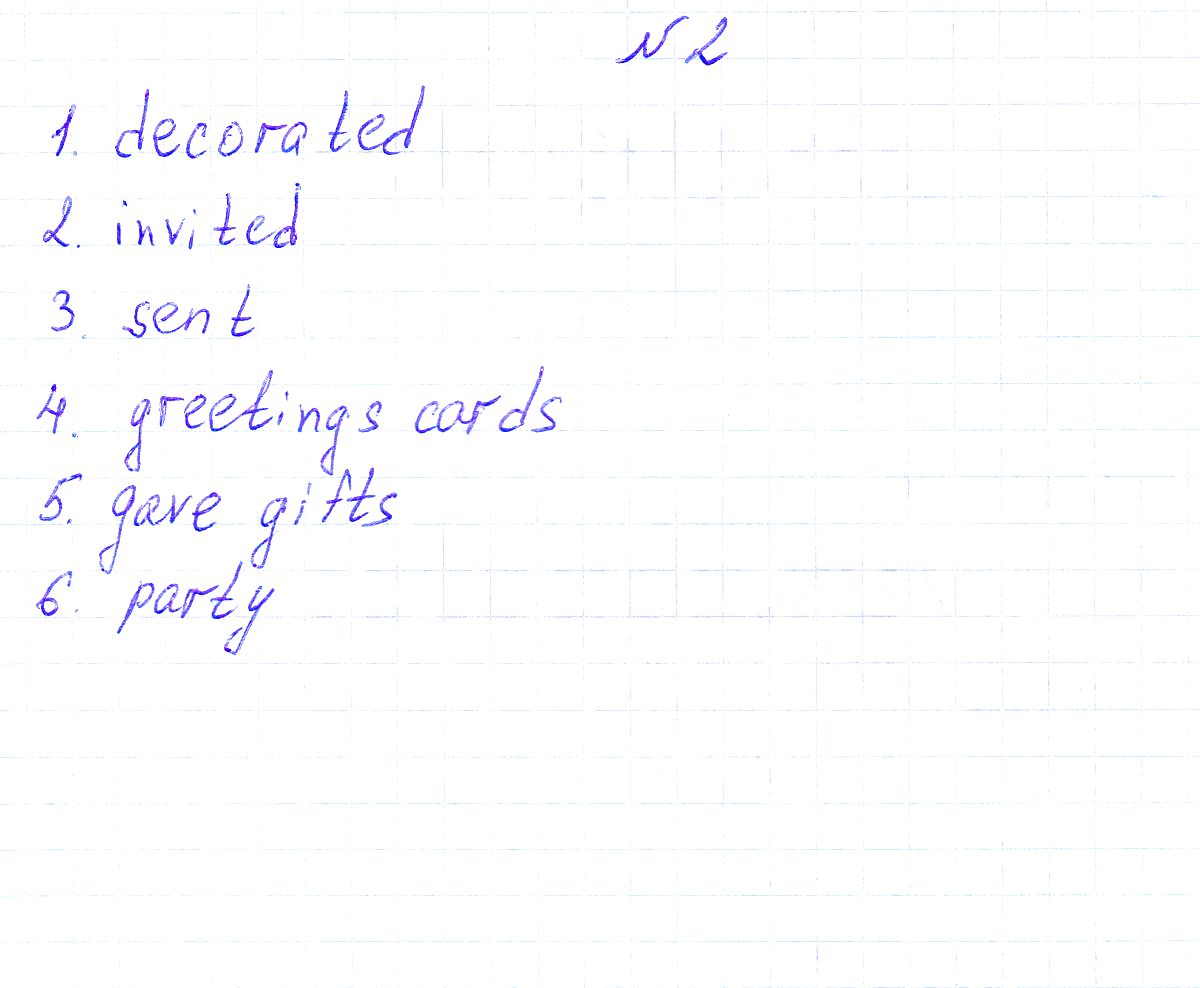 N 2
1. decorated
2. invited
3. sent
4. greetings cards
5. gave gifts
6. party